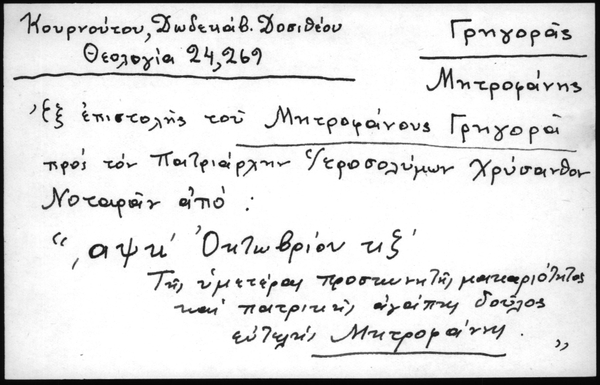 Κουρνούτου, Δωδεκάβ. Δοσιθέου
Θεολογία 24, 269
Γρηγορᾶς
Μητροφάνης
Ἐξ ἐπιστολῆς τοῦ Μητροφάνους Γρηγορᾶ
πρός τόν Πατριάρχην Ἱεροσολύμων Χρύσανθον
Νοταρᾶν ἀπό :
“ ͵αψκ΄ Ὀκτωβρίου κξ΄
Τῆς ὑμετέρας προσκυνητῆς μακαριότητος
καί πατρικῆς ἀγάπης δοῦλος
εὐτελής Μητροφάνης . ”